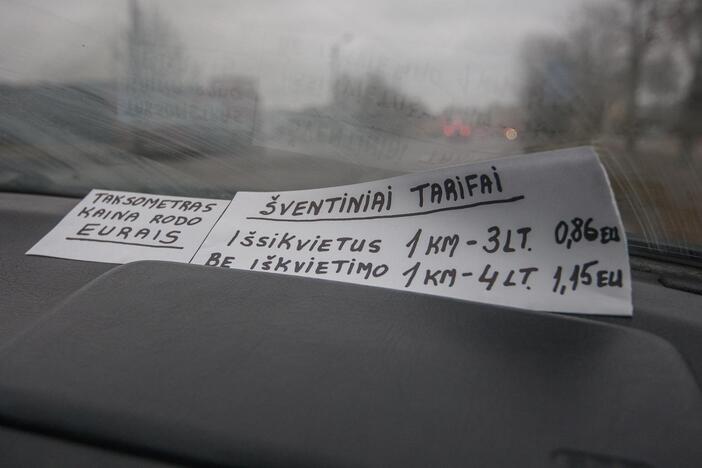 TAKSOMETRAS
KAINA RODO
EURAIS
ŠVENTINIAI TARIFAI
IŠSIKVIETUS 1 KM - 3 LT. 0,86 EU
BE IŠKVIETIMO 1 KM - 4 LT. 1,15 EU